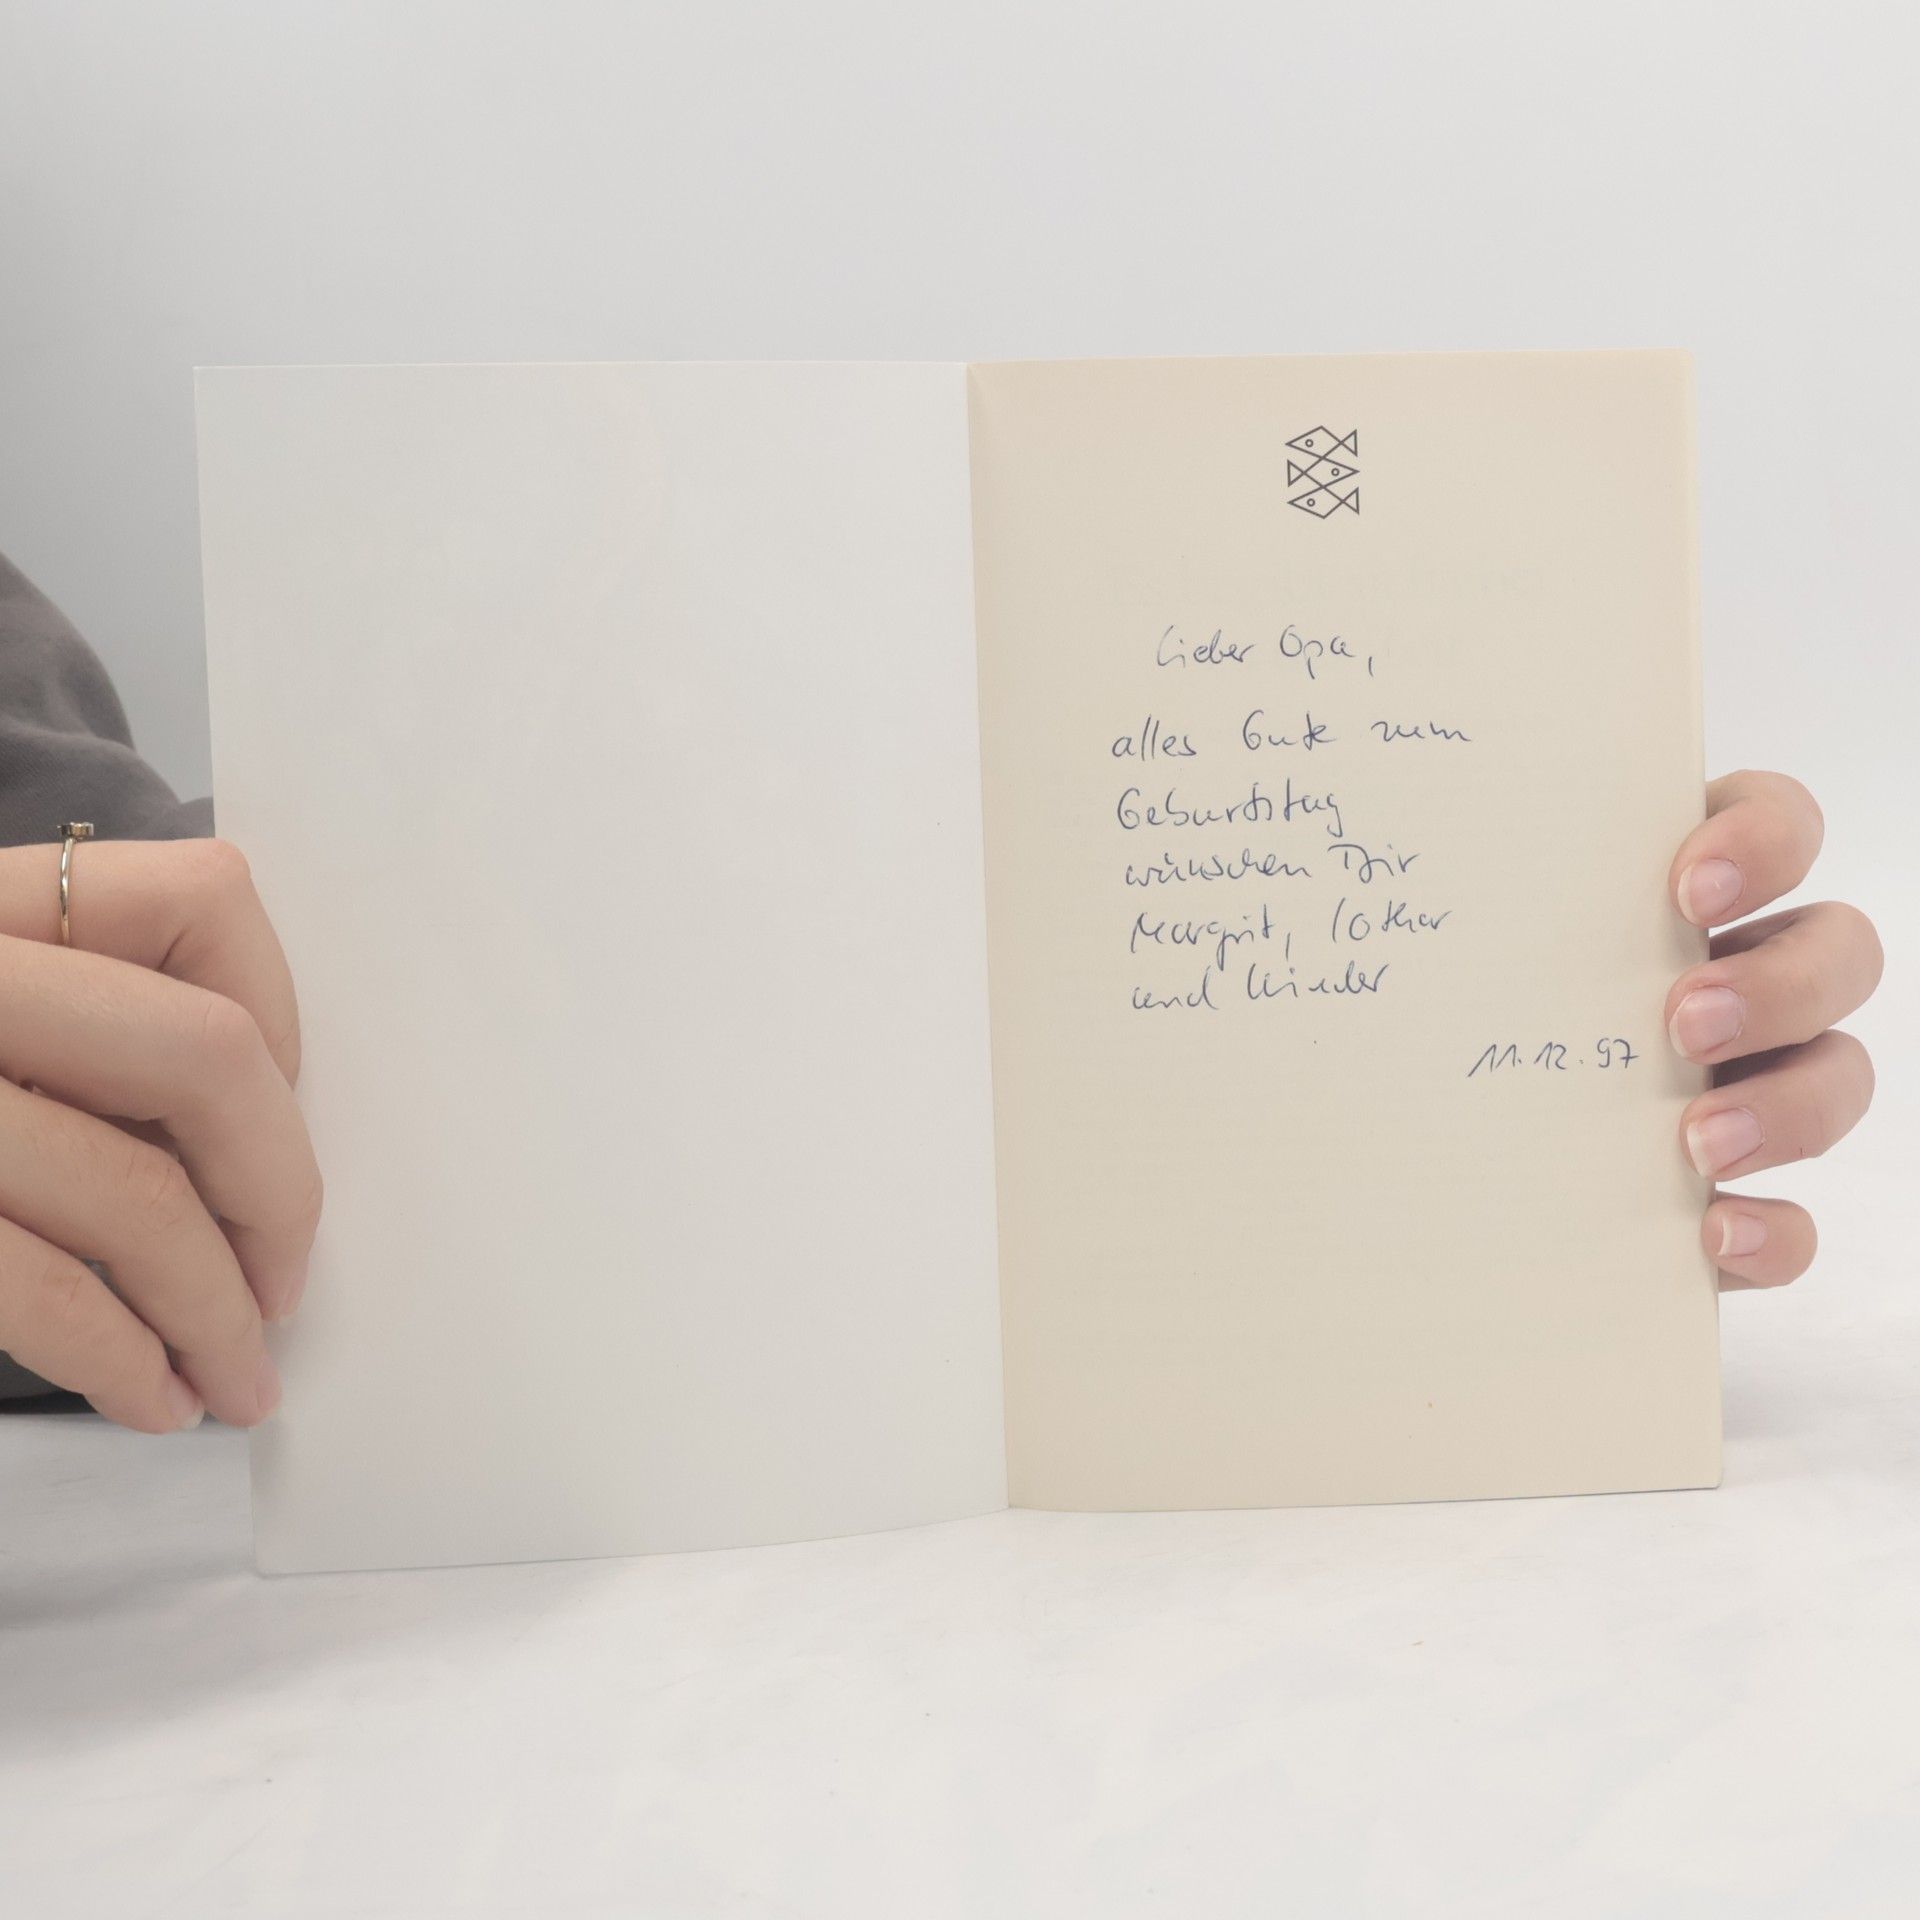 Lieber Opa,
alles Gute zum
Geburtstag
wünschen Dir
Margrit, Lothar
und Kinder
11.12.97